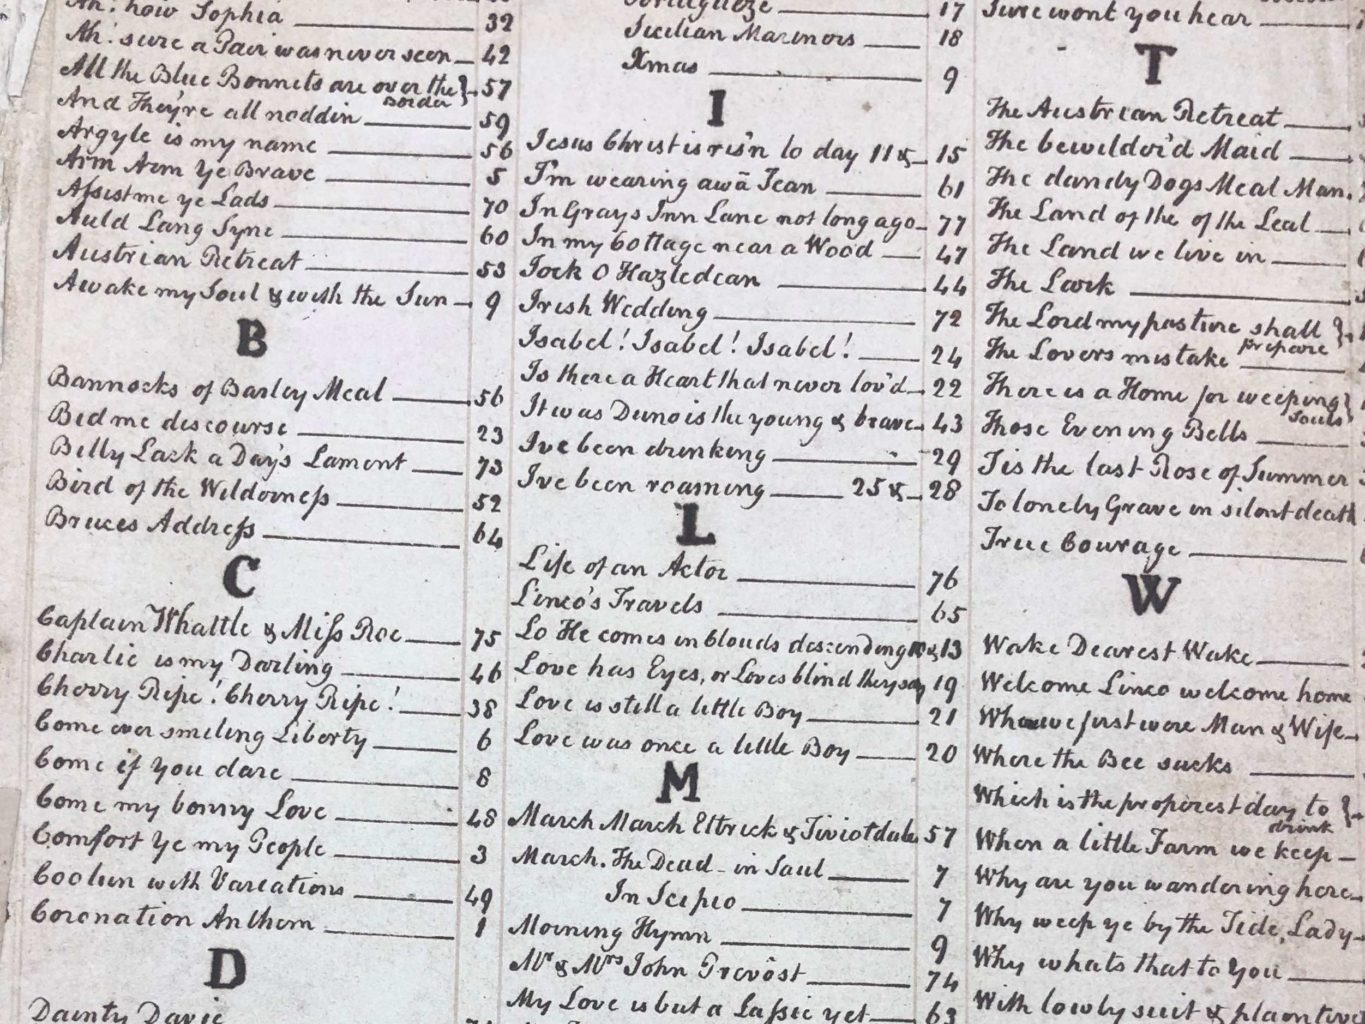 Ah! how Sophia 32
Ah! sure a Pair was never seen 42
All the Blue Bonnets are over the 57
Border
And They're all noddin 59
Argyle is my name 56
Arm Arm Ye Brave 5
Assist me ye Lads 70
Auld Lang Syne 60
Austrian Retreat 53
Awake my Soul & with the Sun 9
B
Bannocks of Barley Meal 56
Bid me discourse 23
Billy Lack a Day's Lament 73
Bird of the Wilderness 52
Bruces Address 64
C
Captain Whattle & Miss Roe 75
Charlie is my Darling 46
Cherry Ripe! Cherry Ripe! 38
Come ever smiling Liberty 6
Come if you dare 8
Come my bonny Love 48
Comfort Ye my People 3
Coolun with Variations 49
Coronation Anthem 1
D
Dainty Davie
Portugueze 17
Sicilian Mariners 18
Xmas 9
I
Jesus Christ is ris'n to day 11 & 15
I'm wearing awa Jean 61
In Grays Inn Lane not long ago 77
In my Cottage near a Wood 47
Jock O Hazledean 44
Irish Wedding 72
Isabel! Isabel! Isabel! 24
Is there a Heart that never lov'd 22
It was Dunois the young & brave 43
Ive been drinking 29
Ive been roaming 25 & 28
L
Life of an Actor 76
Linco's Travels 65
Lo He comes in Clouds descending 10 & 13
Love has Eyes, or Loves blind they say 19
Love is still a little Boy 21
Love was once a little Boy 20
M
March March Etbrick & Tiviotdale 57
March. The Dead in Saul 7
In Scipio 7
Morning Hymn 9
Mr & Mrs John Prevôst 74
My Love is but a Lassie yet 63
Sure wont you hear
T
The Austrian Retreat
The bewilder'd Maid
The dandy Dogs Meal Man
The Land of the of the Leal
The Land we live in
The Lark
The Lord my pasture shall
prepare
The Lovers mistake
There is a Home for weeping
souls
Those Evening Bells
Tis the last Rose of Summer
To lonely Grave in silent death
True Courage
W
Wake Dearest Wake
Welcome Linco welcome home
When we first were Man & Wife
Where the Bee sucks
Which is the properest day to
drink
When a little Farm we keep
Why are you wandering here
Why weep ye by the Tide, Lady
Why whats that to you
With lowly suit & plaintive